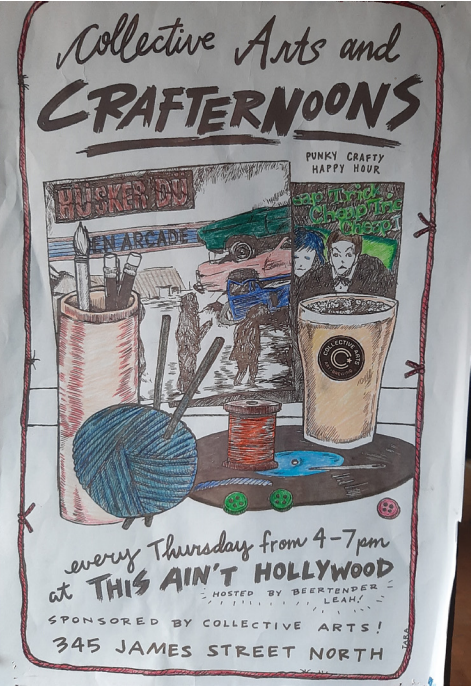 Collective Arts and
CRAFTERNOONS
PUNKY CRAFTY
HAPPY HOUR
HUSKER DU
EN ARCADE
eap Trick
Cheap Tric
Cheap T
COLLECTIVE ARTS
every Thursday from 4-7pm
at THIS AIN'T HOLLYWOOD
HOSTED BY BEERTENDER
LEAH!
SPONSORED BY COLLECTIVE ARTS!
345 JAMES STREET NORTH
TARA